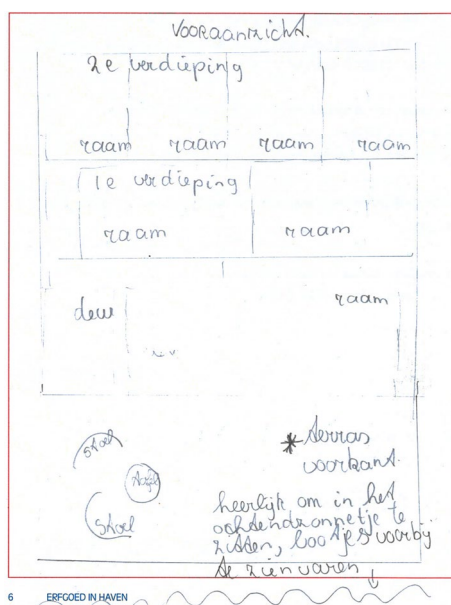 Vooraanzicht.
2e verdieping
raam raam raam raam
1e verdieping
raam raam
raam
deur
stoel
tafel
stoel
* terras
voorkant.
heerlijk om in het
ochtendzonnetje te
zitten, bootjes voorbij
te zien varen
6 ERFGOED IN HAVEN